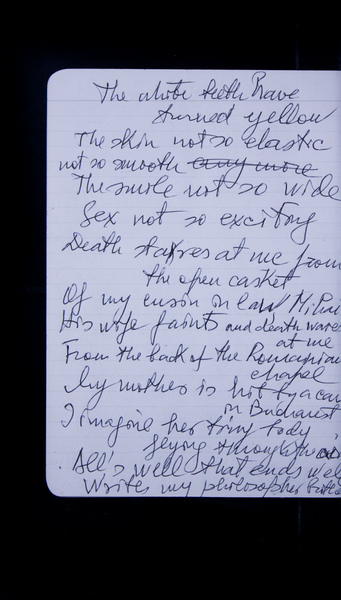 The white teeth have
turned yellow
The skin not so elastic
not so smooth any more
The smile not so wide
Sex not so exciting
Death stares at me from
the open casket
Of my cusin in law
His wife faints and death waves
at me
From the back of the Romanian
chapel
My mother is hit by a car
in Bucharest
I imagine her tiny body
flying through the
All's well that ends well
Writes my philosopher